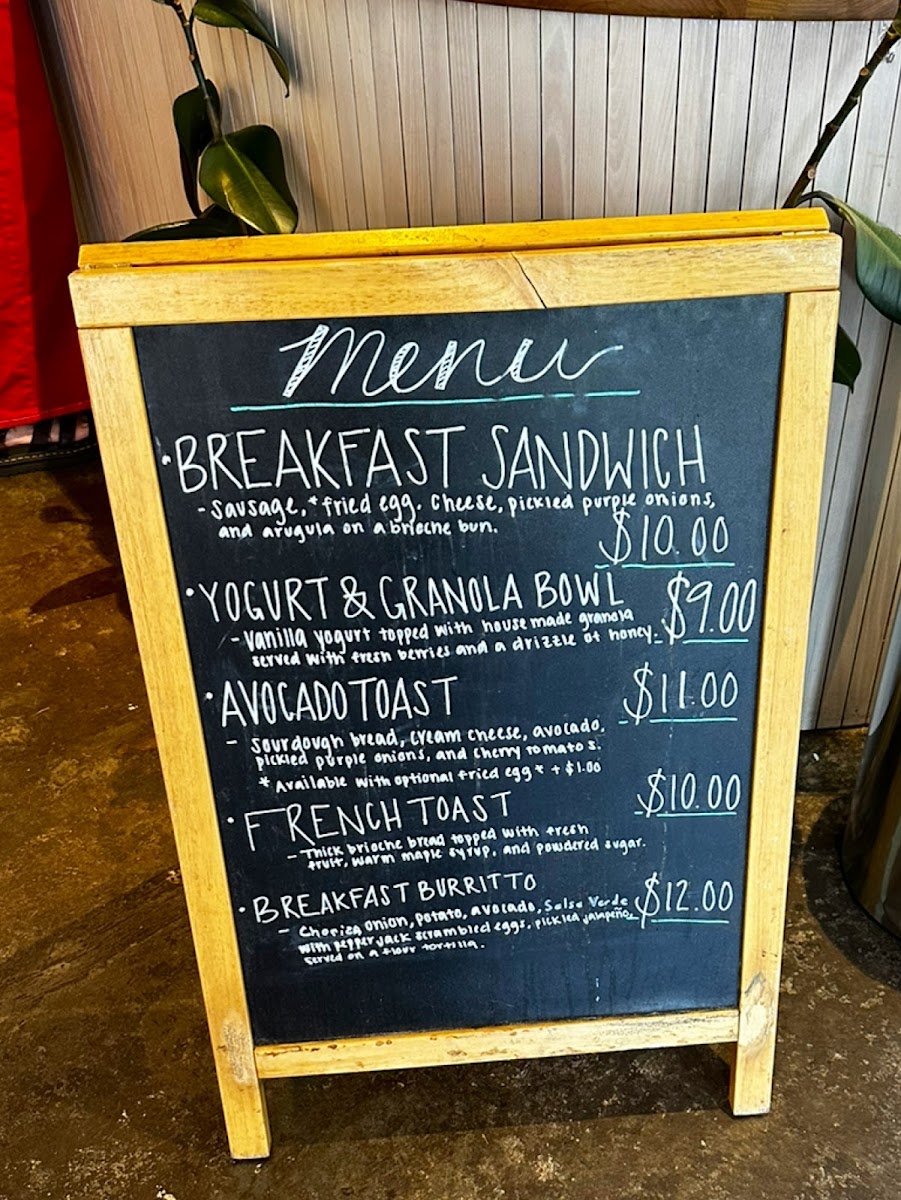 Menu
• BREAKFAST SANDWICH
- Sausage, * fried egg, Cheese, pickled purple onions,
and arugula on a brioche bun.
$10.00
• YOGURT & GRANOLA BOWL
$9.00
- Vanilla yogurt topped with house made granola
served with fresh berries and a drizzle of honey.
• AVOCADO TOAST
$11.00
- Sourdough bread, cream cheese, avocado,
pickled purple onions, and cherry tomatos.
* Available with optional fried egg * + $1.00
• FRENCH TOAST
$10.00
- Thick brioche bread topped with fresh
fruit, warm maple syrup, and powdered sugar.
• BREAKFAST BURRITTO
$12.00
- onion, potato, avocado, Salsa Verde
with pepper jack scrambled eggs, pickled jalapeño,
served on a flour tortilla.